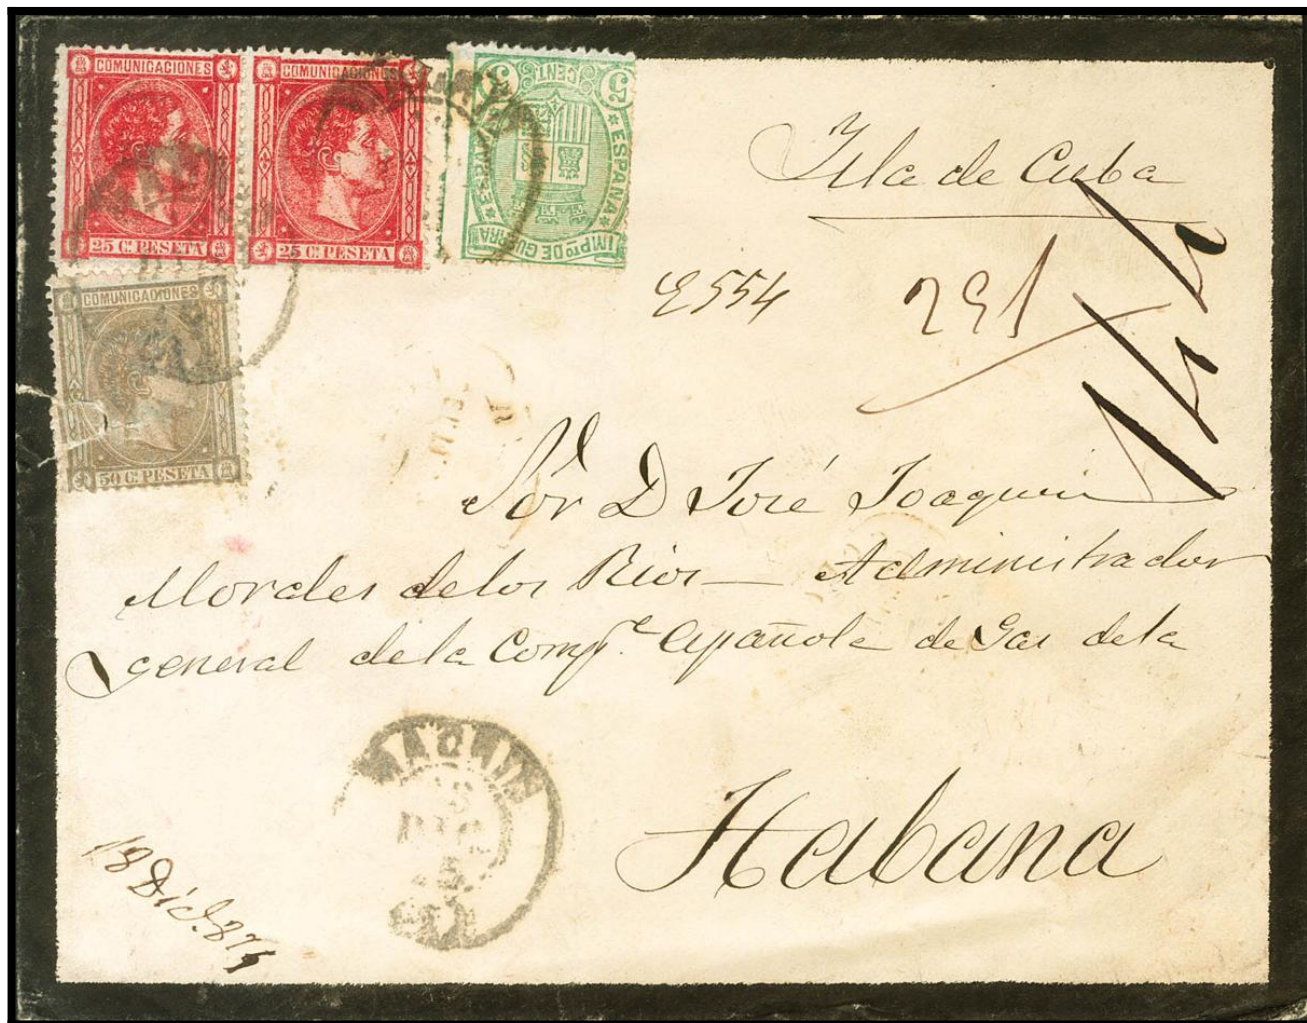 COMUNICACIONES
25 C. PESETA
COMUNICACIONES
25 C. PESETA
5 CENT. 5
ESPAÑA
IMPTO DE GUERRA
COMUNICACIONES
50 C. PESETA
Isla de Cuba
291
Sor D José Joaquin
Morales de los Rios — Administrador
general de la Compe. Española de Gas de la
Habana
DIC
18 Dic. 875